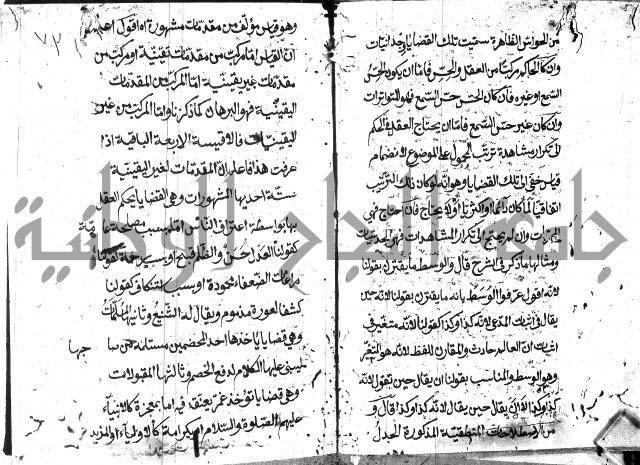 من الحواس الظاهرة سميت تلك القضايا وجدانيات
وان كان الحاكم مركبا من العقل والحس فاما ان يكون الحس
السمع او غيره فان كان الحس حس السمع فهو المتواترات
وان كان غير حس السمع فاما ان يحتاج العقل في الحكم
الى تكرار مشاهدة ترتب المحمول على الموضوع لانضمام
قياس خفي الى تلك القضايا وهو انه لو كان ذلك الترتب
اتفاقيا لما كان دائما ولا اكثريا او لا يحتاج فان احتاج فهي
المجربات وان لم يحتج الى تكرار المشاهدات فهي الحدسيات
ومثالها ما ذكر في الشرح قال والوسط ما يقترن بقولنا
لانه اقول عرفوا الوسط بانه ما يقترن بقولنا لانه حين
يقال في اثبات المدعى لانه كذا وكذا كقولنا لانه متغير في
اثبات ان العالم حادث والمقارن للفظ لانه هو المتغير
وهو الوسط والمناسب بقولنا ان يقال حين نقول لانه
كذا وكذا لا ان يقال حين يقال لانه كذا وكذا قال و
من الاصطلاحات المنطقية المذكورة الجدل
٧٢١
وهو قياس مؤلف من مقدمات مشهورة اه اقول اعلم
ان القياس اما مركب من مقدمات يقينية او مركب من
مقدمات غير يقينية اما المركب من المقدمات
اليقينية فهو البرهان كما ذكرنا واما المركب من غير
اليقينيات فالاقيسة الاربعة الباقية اذا
عرفت هذا فاعلم ان المقدمات الغير اليقينية
ستة احديها المشهورات وهي القضايا يحكم العقل
بها بواسطة اعتراف الناس اما بسبب مصلحة عامة
كقولنا العدل حسن والظلم قبيح او بسبب رحمة كقولنا
مراعات الضعفاء محمودة او بسبب استنكاف كقولنا
كشف العورة مذموم ويقال له الشنيع وثانيها المسلمات
وهي قضايا ياخذها احد الخصمين مسلمة من صا
جها
ليبنى عليها الكلام لدفع الخصم وثالثها المقبولات
وهي قضايا تؤخذ عمن يعتقد فيه اما بمعجزة كالانبياء
عليهم الصلوة والسلام او بكرامة كالاولياء او لمزيد
جامعة النجاح الوطنية